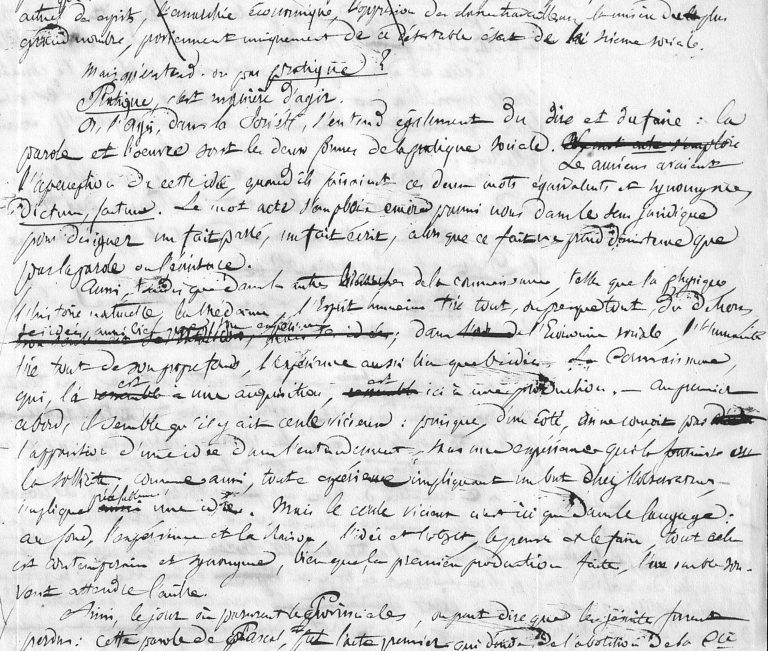 autres des esprits, l'anarchie économique, l'oppression des travailleurs, la misère du plus
grand nombre, proviennent uniquement de ce détestable état de la science sociale.
Mais qu'entend-on par pratique?
Pratique, c'est manière d'agir.
Or, l'agir, dans la Société, s'entend également du dire et du faire : la
parole et l'oeuvre sont les deux formes de la pratique sociale.
Les anciens avaient
l'aperception de cette idée, quand ils faisaient ces deux mots équivalents et synonymes,
Dictum, factum. Le mot acte s'emploie encore parmi nous dans le sens juridique
pour désigner un fait passé, un fait écrit, alors que ce fait ne prend d'existence que
par la parole ou l'écriture.
Aussi, tandis que dans les autres branches de la connaissance, telles que la physique,
l'histoire naturelle, la médecine, l'Esprit humain tire tout, ou presque tout, du dehors,
ses idées, aussi bien que son expérience; dans l'Economie sociale, l'humanité
tire tout de son propre fonds, l'expérience aussi bien que l'idée. La Connaissance,
qui, là est une acquisition, est ici une production. — Au premier
abord, il semble qu'il y ait cercle vicieux : puisque, d'un côté, on ne conçoit pas
l'apparition d'une idée dans l'entendement, sans une expérience qui la
sollicite, comme aussi, toute expérience impliquant un but chez l'observateur,
implique une idée. Mais le cercle vicieux n'est ici que dans le langage :
au fond, l'expérience et la raison, l'idée et l'objet, le penser et le faire, tout cela
est contemporain et synonyme, bien que, la première production faite, l'une semble sou-
vent attendre l'autre.
Ainsi, le jour où parurent les Provinciales, on peut dire que les jésuites furent
perdus : cette parole de Pascal, fut l'acte premier qui de l'abolition de la Cie